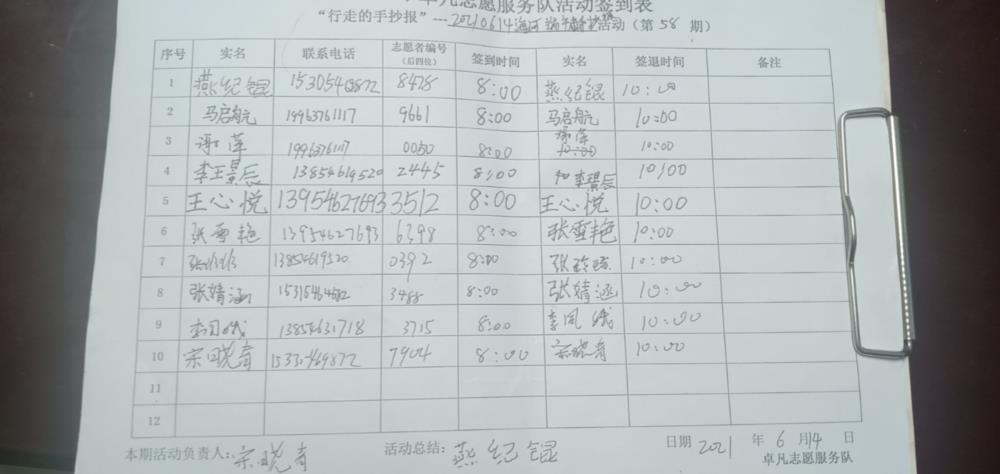 卓凡志愿服务队活动签到表
“行走的手抄报”---20210614 活动（第 58 期）
序号 实名 联系电话 志愿者编号（后四位） 签到时间 实名 签退时间 备注
1 燕纪锟 8478 8:00 燕纪锟 10:00
2 马启航 19963761117 9661 8:00 马启航 10:00
3 谢萍 19963761117 0050 8:00 谢萍 10:00 10:00
4 李王景辰 13854619520 2445 8:00 10:00
5 王心悦 13954627693 3512 8:00 王心悦 10:00
6 张雪艳 13954627693 6398 8:00 张雪艳 10:00
7 13854619520 0392 8:00 10:00
8 张婧涵 3488 8:00 张婧涵 10:00
9 13854631718 3715 8:00 10:00
10 宋晓奇 7904 8:00 宋晓奇 10:00
11
12
本期活动负责人：宋晓奇 活动总结：燕纪锟 日期 2021 年 6 月 14 日
卓凡志愿服务队